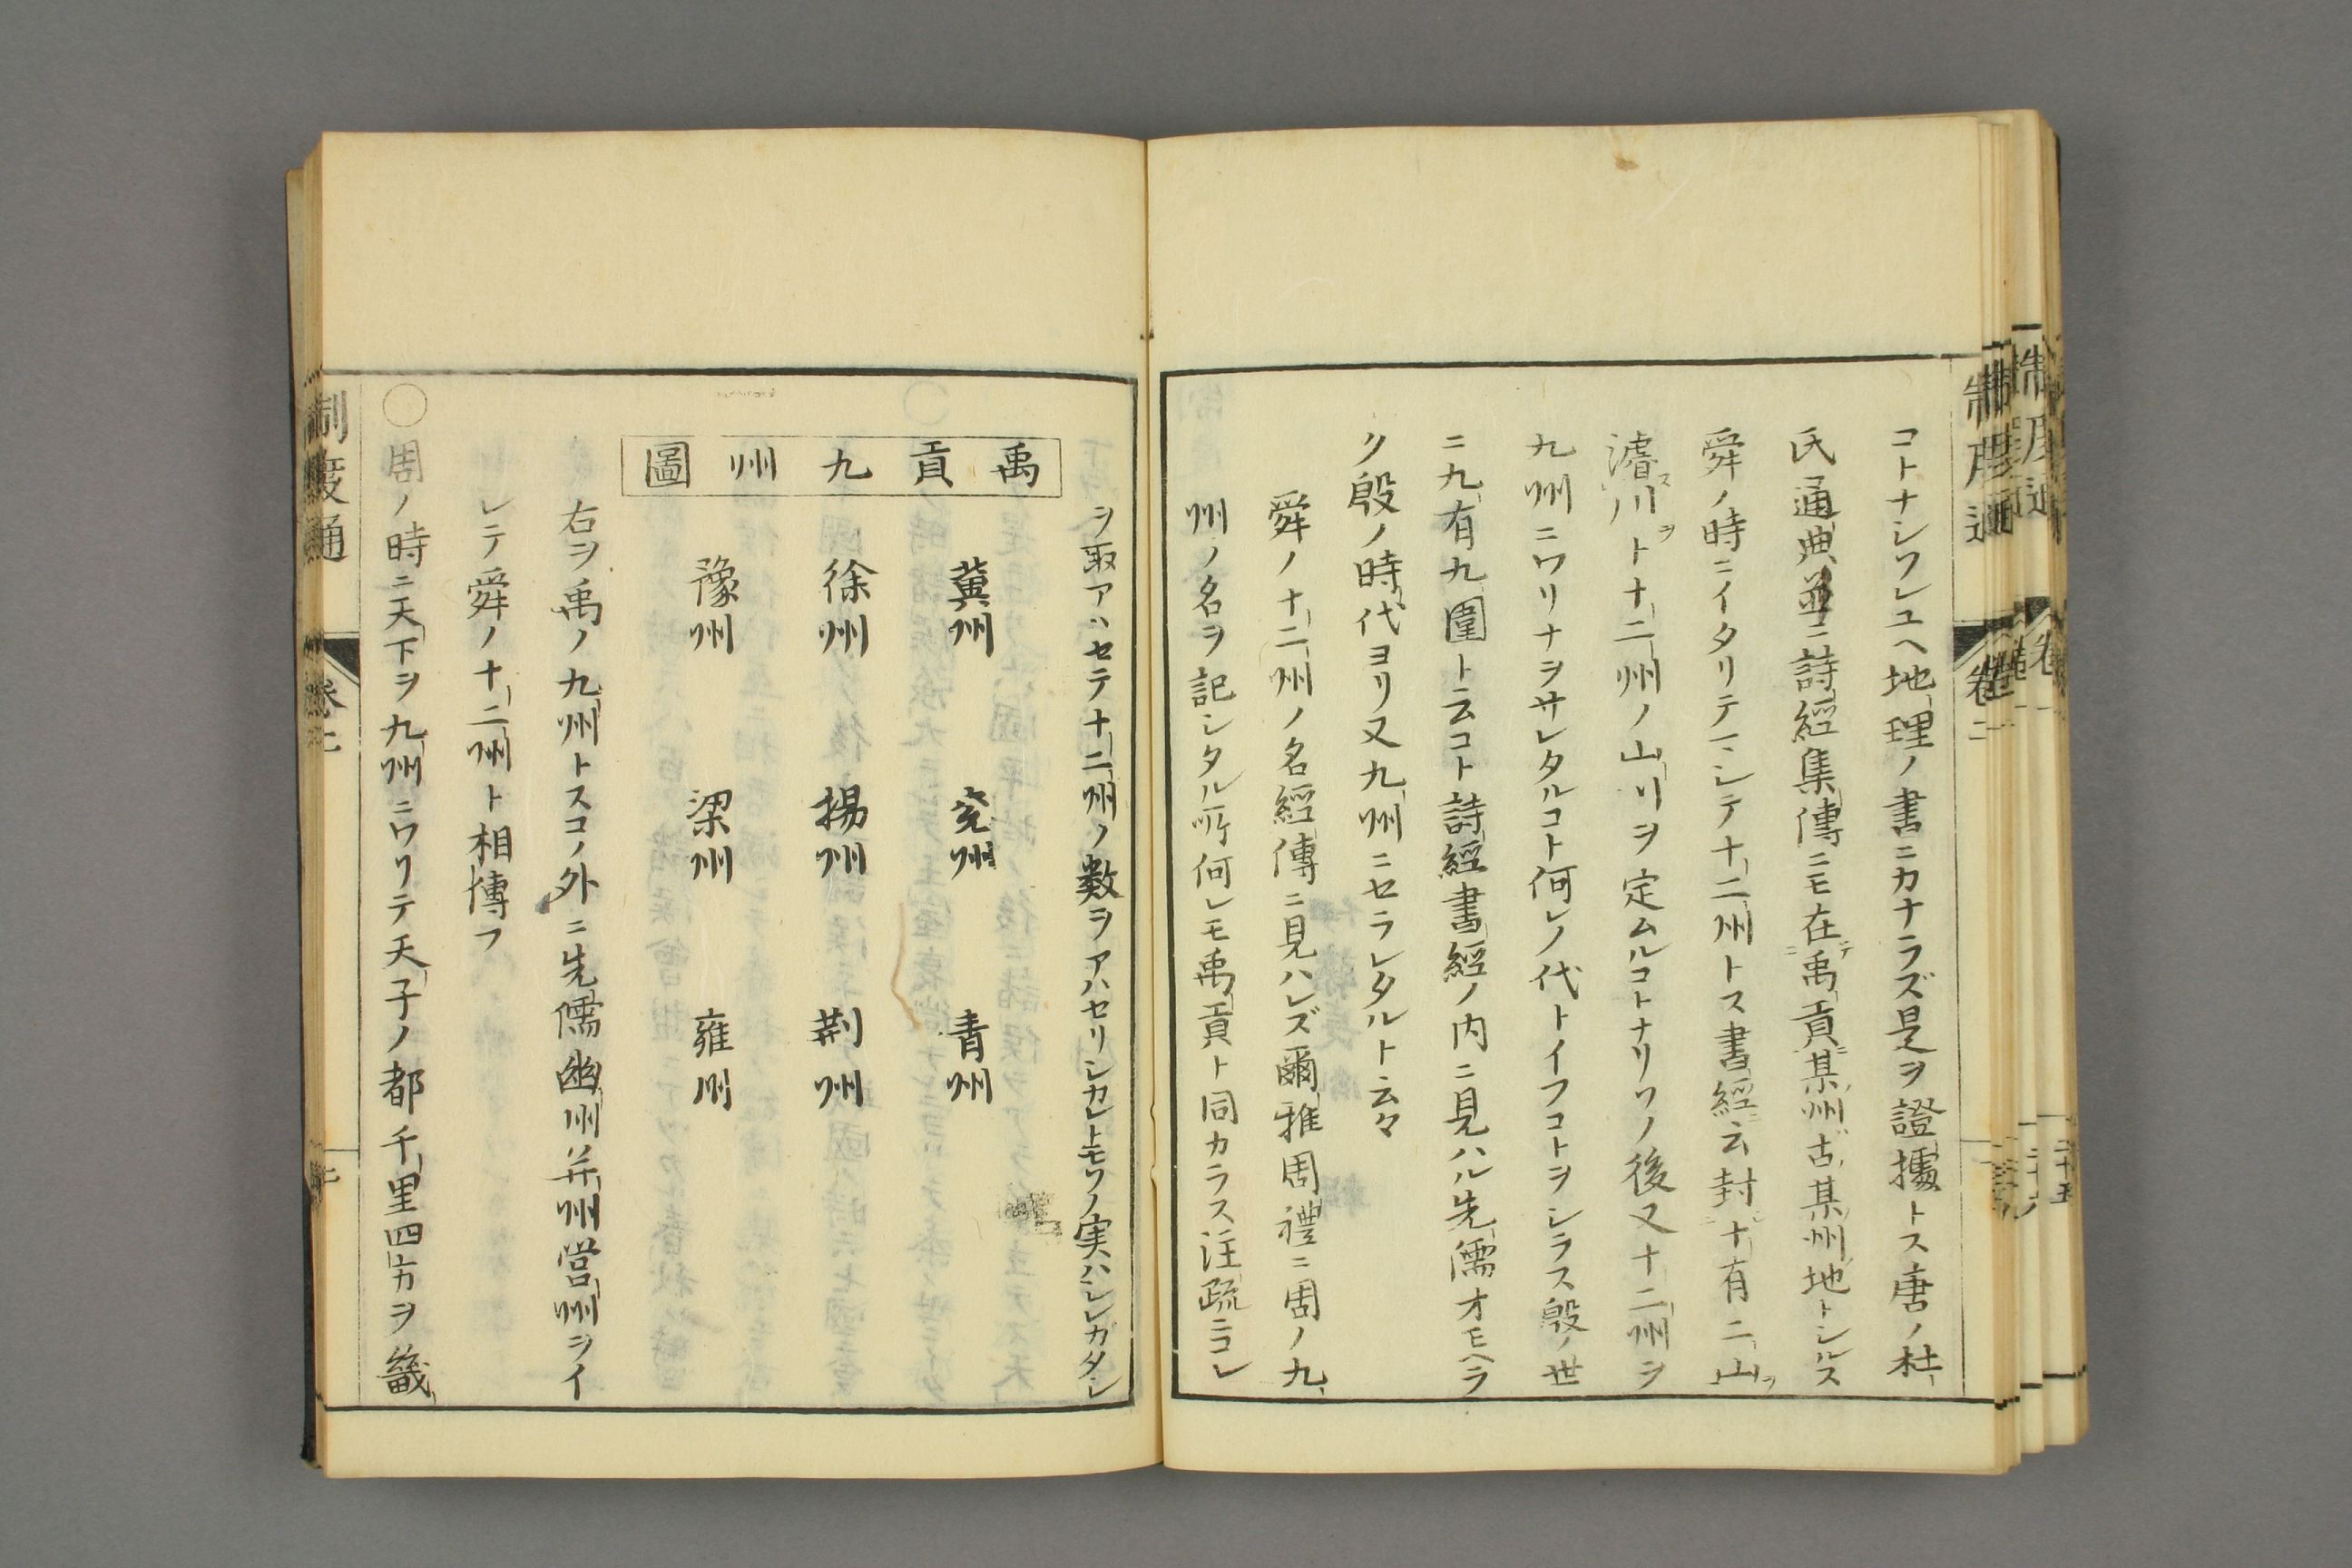 コトナシワレユヘ地理ノ書ニカナラズ是ヲ證據トス唐ノ杜
氏通典並ニ詩經集傳ニモ在禹貢某州古某州地トシルス
舜ノ時ニイタリテ一ニシテ十二州トス書經ニ云封十有二山ヲ
濬川ヲト十二州ノ山川ヲ定ムルコトナリソノ後又十二州ヲ
九州ニワリナヲサレタルコト何レノ代トイフコトヲシラス殷ノ世
ニ九有九圍ト云コト詩經書經ノ内ニ見ハル先儒オモヘラ
ク殷ノ時代ヨリ又九州ニセラレタルト云々
舜ノ十二州ノ名經傳ニ見ハレズ爾雅周禮ニ周ノ九
州ノ名ヲ記シタル所何レモ禹貢ト同カラス注疏ニコレ
ヲ取アハセテ十二州ノ数ヲアハセリシカレトモソノ実ハシレガタシ
禹貢九州圖
冀州 兗州 青州
徐州 揚州 荆州
豫州 梁州 雍州
右ヲ禹ノ九州トスコノ外ニ先儒幽州并州営州ヲイ
レテ舜ノ十二州ト相傳フ
○周ノ時ニ天下ヲ九州ニワリテ天子ノ都千里四方ヲ畿
制度通 卷二